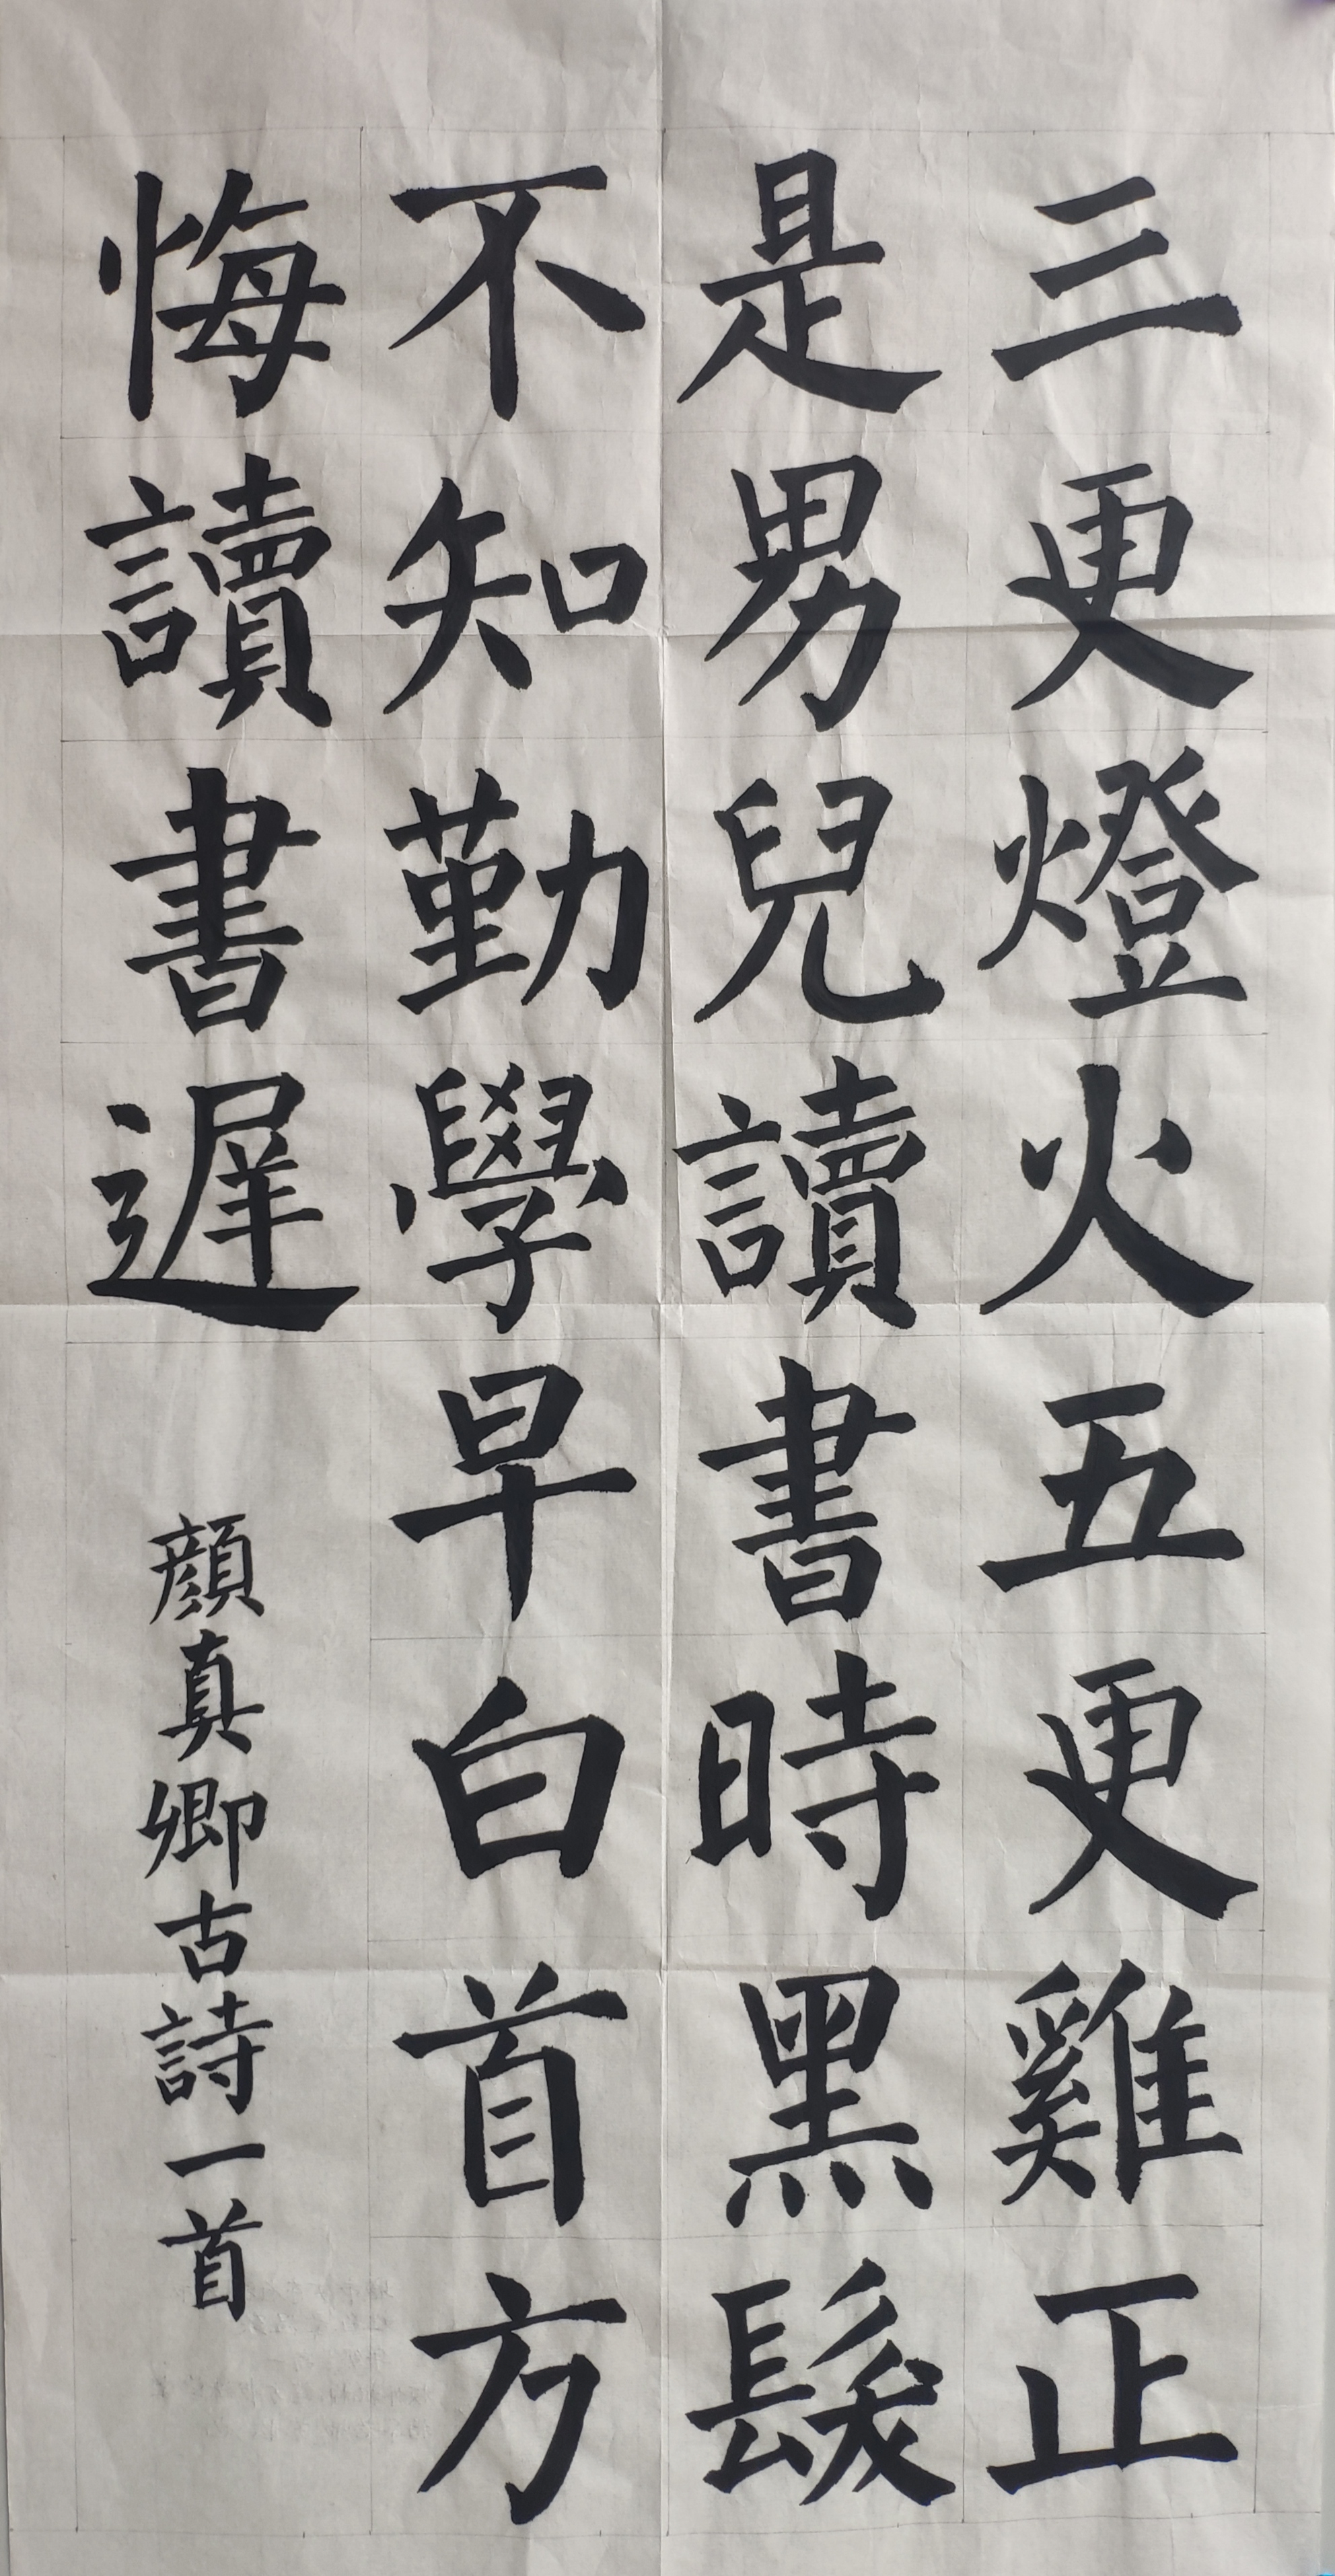 三更燈火五更雞正
是男兒讀書時黑髮
不知勤學早白首方
悔讀書遲
顔真卿古詩一首